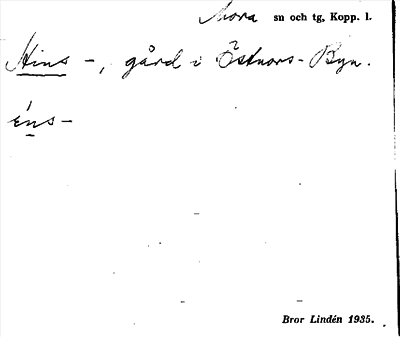 Mora sn och tg, Kopp. l.
Hins -, gård i Östnors-Byn.
éns-
Bror Lindén 1935.